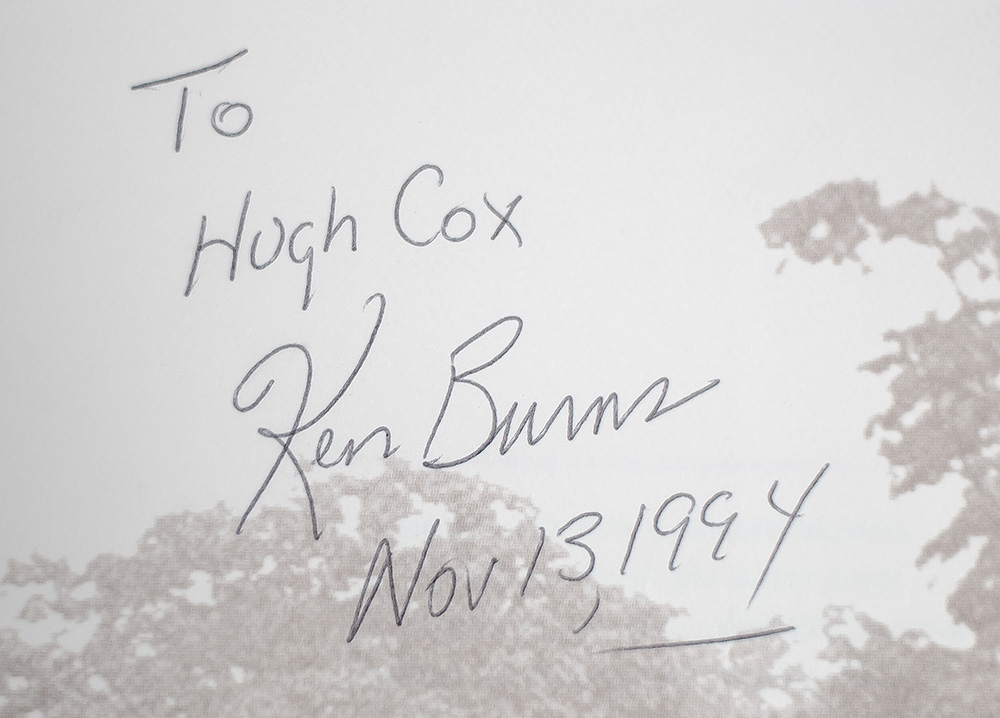 To
Hugh Cox
Ken Burns
Nov 13, 1994